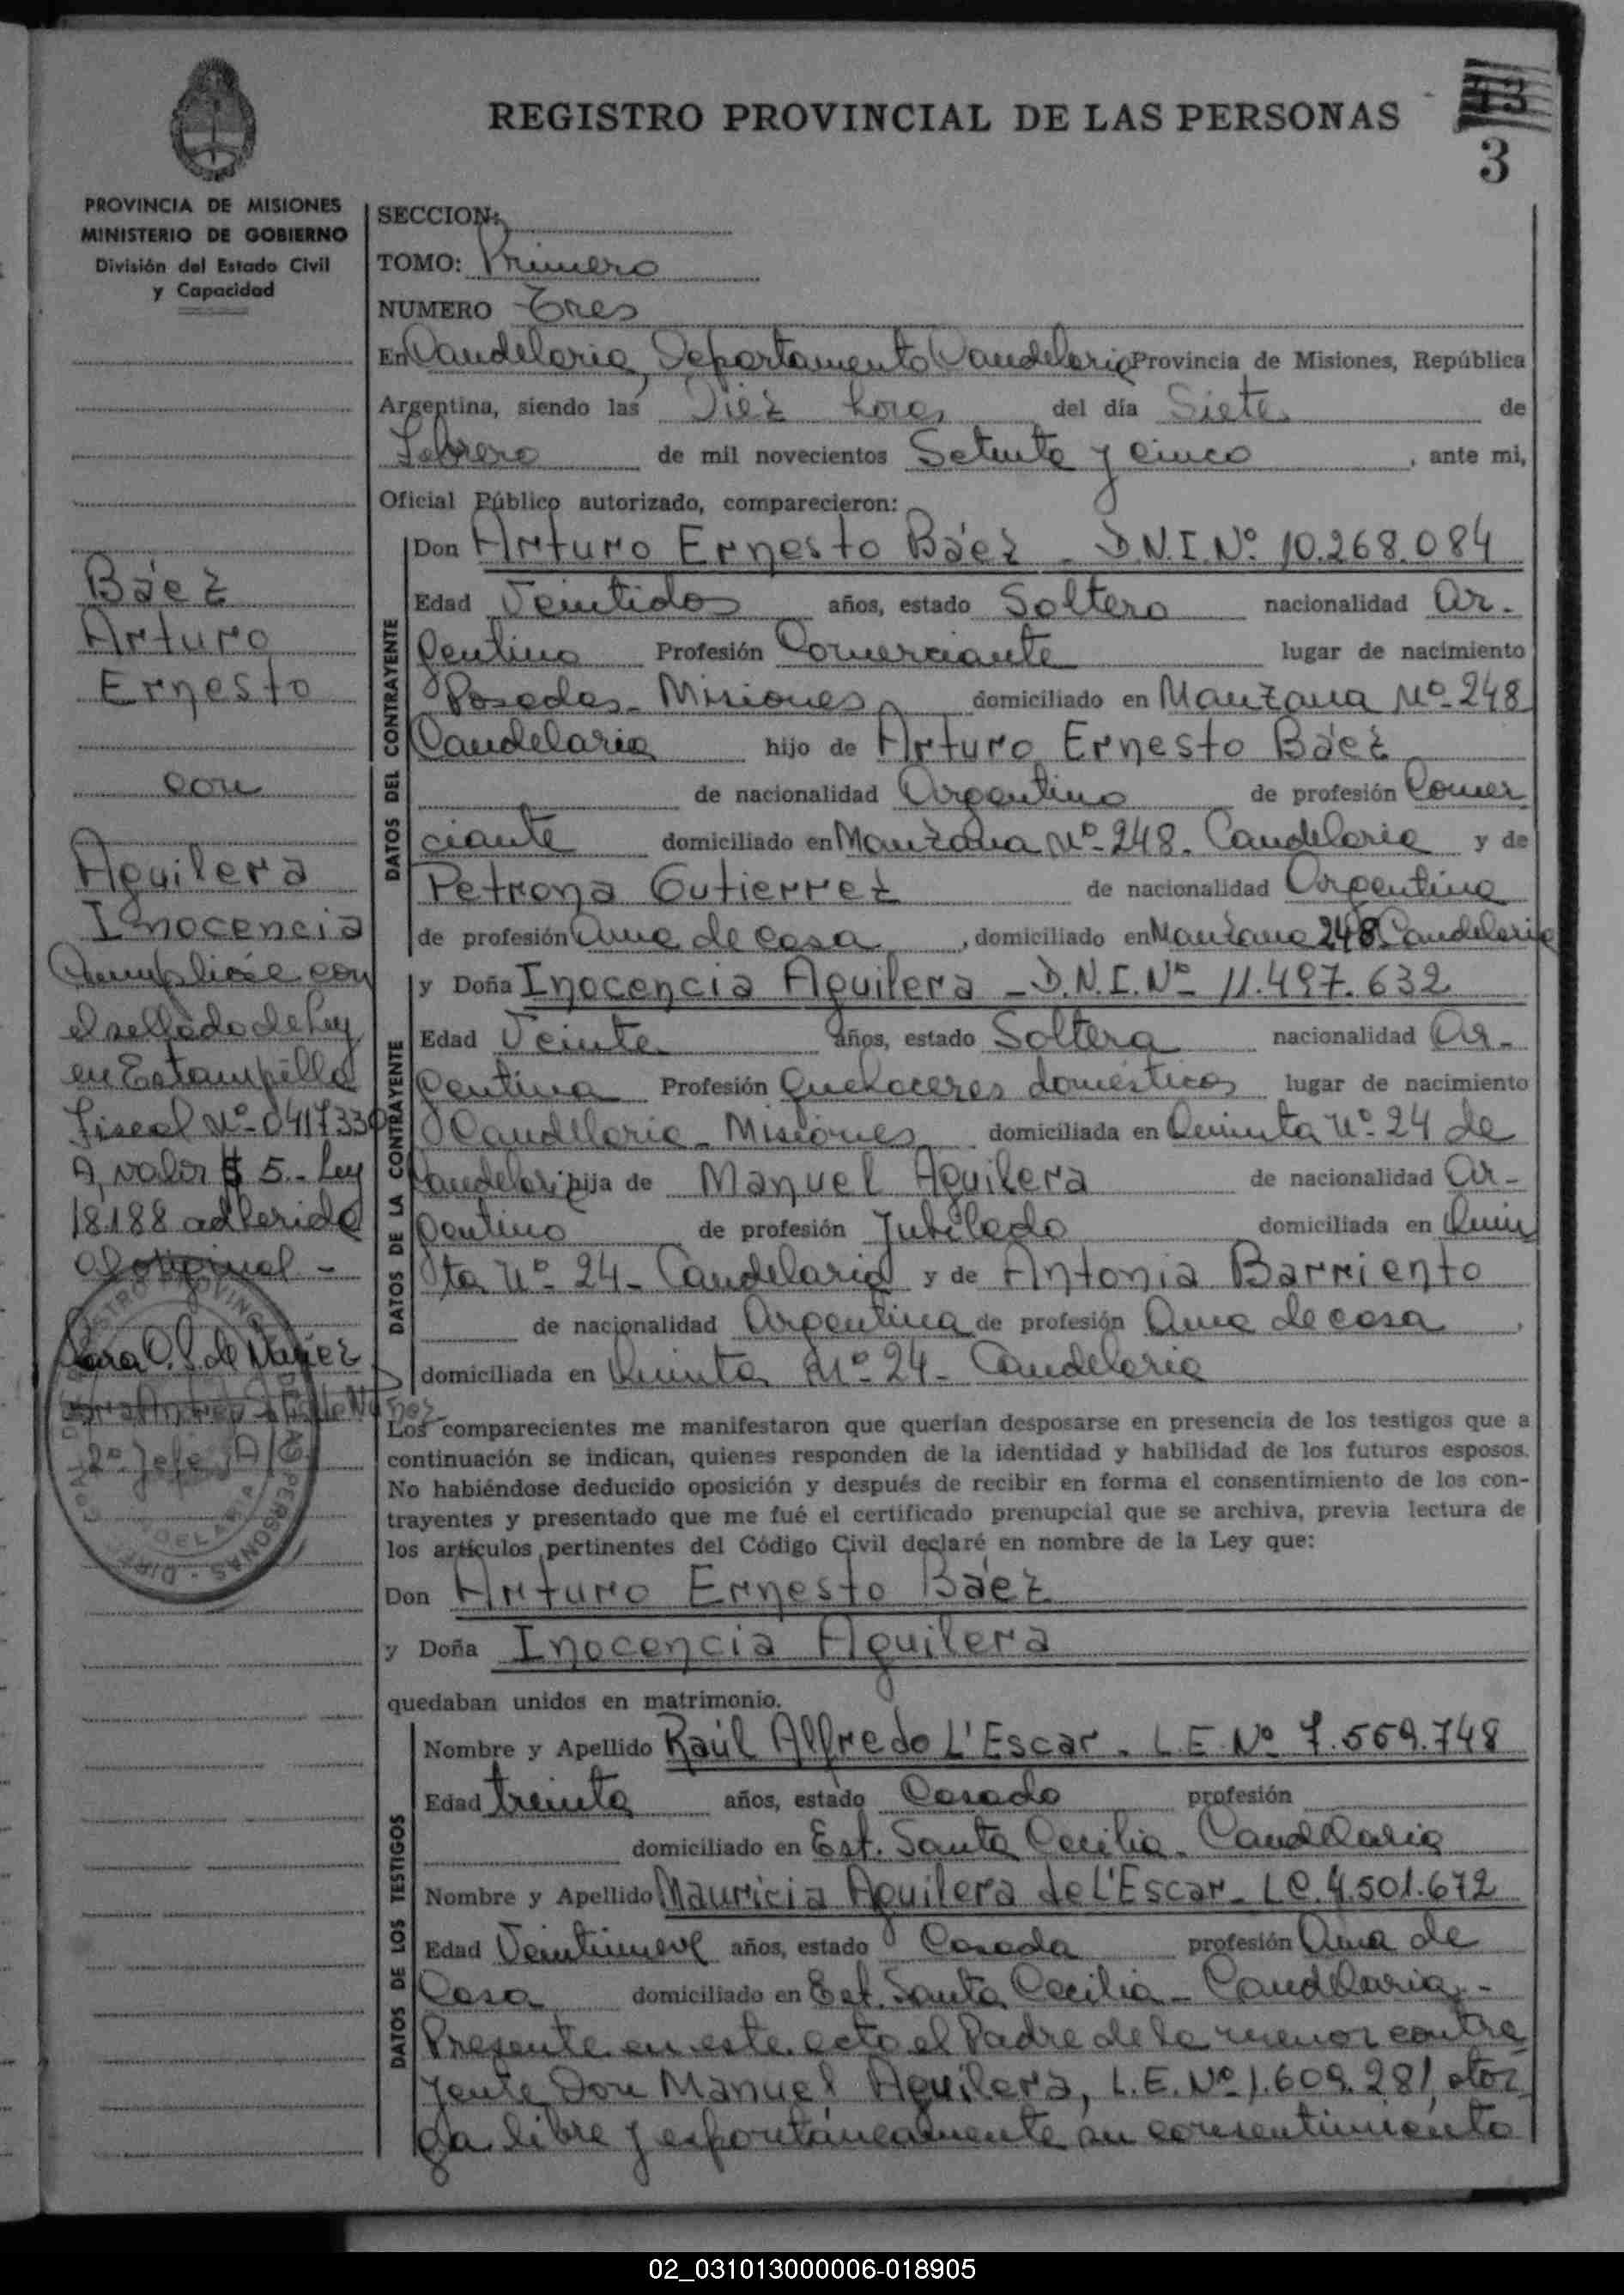 REGISTRO PROVINCIAL DE LAS PERSONAS
13
3
PROVINCIA DE MISIONES
MINISTERIO DE GOBIERNO
División del Estado Civil
y Capacidad
SECCION:
TOMO: Primero
NUMERO Tres
En Candelaria, Departamento Candelaria Provincia de Misiones, República
Argentina, siendo las Diez horas del día Siete de
Febrero de mil novecientos Setenta y cinco, ante mi,
Oficial Público autorizado, comparecieron:
DATOS DEL CONTRAYENTE
Don Arturo Ernesto Báez - D.N.I. Nº 10.268.084
Edad Veintidos años, estado Soltero nacionalidad Ar-
gentino Profesión Comerciante lugar de nacimiento
Posadas - Misiones domiciliado en Manzana Nº 248
Candelaria hijo de Arturo Ernesto Báez
de nacionalidad Argentino de profesión Comer
ciante domiciliado en Manzana Nº 248. Candelaria y de
Petrona Gutierrez de nacionalidad Argentina
de profesión Ama de Casa, domiciliado en Manzana 248 Candelaria
DATOS DE LA CONTRAYENTE
y Doña Inocencia Aguilera - D.N.I. Nº 11.497.632
Edad Veinte años, estado Soltera nacionalidad Ar-
gentina Profesión Quehaceres domésticos lugar de nacimiento
Candelaria - Misiones domiciliada en Quinta Nº 24 de
Candelaria hija de Manuel Aguilera de nacionalidad Ar-
gentino de profesión Jubilado domiciliada en Quin
ta Nº 24 - Candelaria y de Antonia Barriento
de nacionalidad Argentina de profesión Ama de casa,
domiciliada en Quinta Nº 24 - Candelaria
Los comparecientes me manifestaron que querían desposarse en presencia de los testigos que a
continuación se indican, quienes responden de la identidad y habilidad de los futuros esposos.
No habiéndose deducido oposición y después de recibir en forma el consentimiento de los con-
trayentes y presentado que me fué el certificado prenupcial que se archiva, previa lectura de
los artículos pertinentes del Código Civil declaré en nombre de la Ley que:
Don Arturo Ernesto Báez
y Doña Inocencia Aguilera
quedaban unidos en matrimonio.
DATOS DE LOS TESTIGOS
Nombre y Apellido Raúl Alfredo L'Escar. L.E. Nº 7.569.748
Edad treinta años, estado Casado profesión
domiciliado en Est. Santa Cecilia. Candelaria
Nombre y Apellido Mauricia Aguilera de L'Escar - L.C. 4.501.672
Edad Veintinueve años, estado Casada profesión Ama de
Casa domiciliado en Est. Santa Cecilia - Candelaria -
Presente en este acto el Padre de la menor contra
yente Don Manuel Aguilera, L.E. Nº 1.609.281, otor
ga libre y espontáneamente su consentimiento
Báez
Arturo
Ernesto
con
Aguilera
Inocencia
Cumpliose con
el sellado de Ley
en Estampilla
Fiscal Nº 0417330
A, valor $ 5.- Ley
18.188 adherida
al original -
Sara O. S. de Nuñez
2º Jefe A/C
02_031013000006-018905